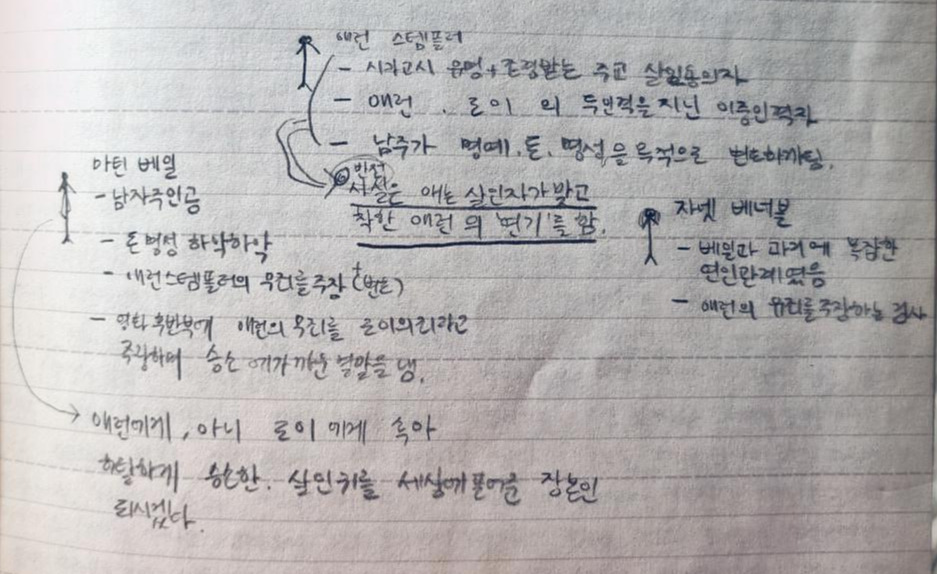 애런 스템플러
- 시카고시 유명+존경받는 주교 살인용의자
- 애런, 로이 의 두인격을 지닌 이중인격자
- 남주가 명예, 돈, 명성을 목적으로 변호하게됨.
반전
사실은 얘는 살인자가 맞고
착한 애런 의 '연기'를 함.
마틴 베일
- 남자주인공
- 돈 명성 하악하악
- 애런스템플러의 무죄를 주장 (변호)
- 영화 후반부에 애런의 무죄를
주장하며 승소 에가까운 결말을 냄.
애런에게, 아니 로이 에게 속아
허탈하게 승소한. 살인귀를 세상에풀어준 장본인
되시겠다.
자넷 베너블
- 베일과 과거에 복잡한
연인관계였음
- 애런의 유죄를주장하는 검사